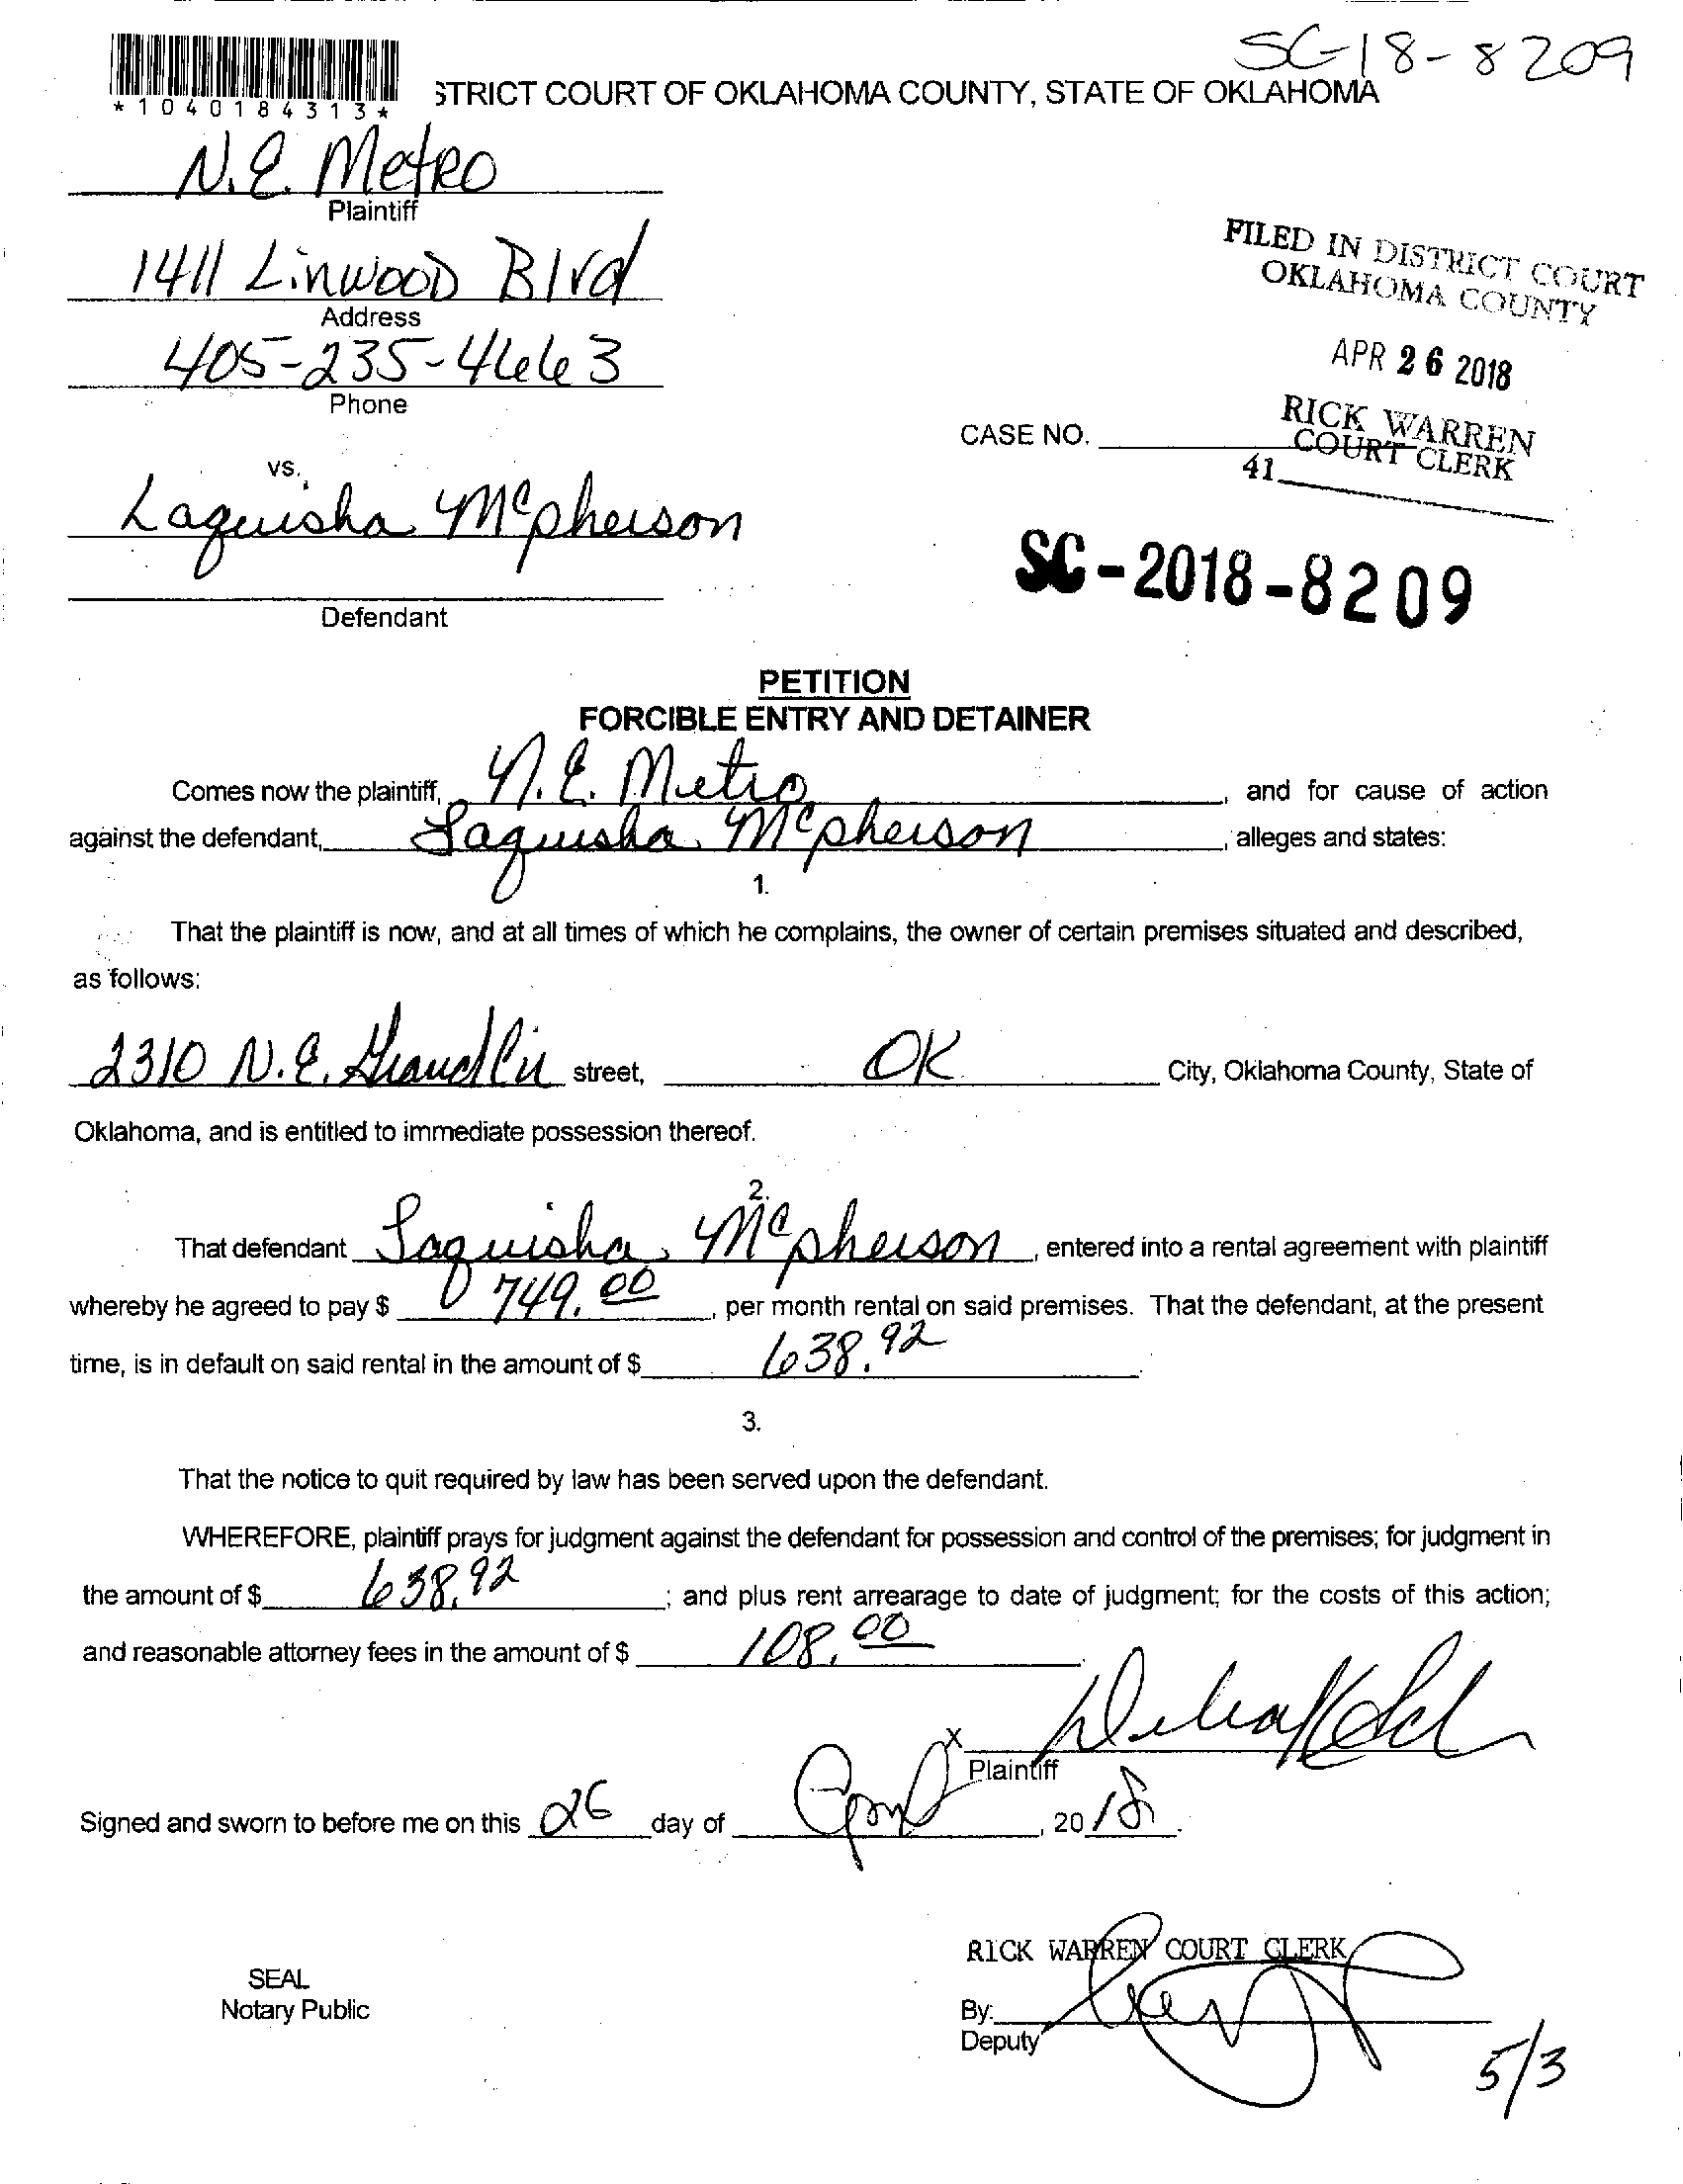 SC-18-8209
*1040184313*
STRICT COURT OF OKLAHOMA COUNTY, STATE OF OKLAHOMA
N.E. Metro
Plaintiff
1411 Linwood Blvd
Address
405-235-4663
Phone
vs.
Laquisha Mcpherson
Defendant
FILED IN DISTRICT COURT
OKLAHOMA COUNTY
APR 26 2018
RICK WARREN
COURT CLERK
41
CASE NO.
SC-2018-8209
PETITION
FORCIBLE ENTRY AND DETAINER
Comes now the plaintiff, N.E. Metro, and for cause of action
against the defendant, Laquisha Mcpherson, alleges and states:
1.
That the plaintiff is now, and at all times of which he complains, the owner of certain premises situated and described,
as follows:
2310 N.E. street, OK City, Oklahoma County, State of
Oklahoma, and is entitled to immediate possession thereof.
2.
That defendant Laquisha Mcpherson, entered into a rental agreement with plaintiff
whereby he agreed to pay $ 749.00, per month rental on said premises. That the defendant, at the present
time, is in default on said rental in the amount of $ 638.92.
3.
That the notice to quit required by law has been served upon the defendant.
WHEREFORE, plaintiff prays for judgment against the defendant for possession and control of the premises; for judgment in
the amount of $ 638.92; and plus rent arrearage to date of judgment; for the costs of this action;
and reasonable attorney fees in the amount of $ 108.00.
X
Plaintiff
Signed and sworn to before me on this 26 day of April, 2018.
SEAL
Notary Public
RICK WARREN COURT CLERK
By:
Deputy
5/3